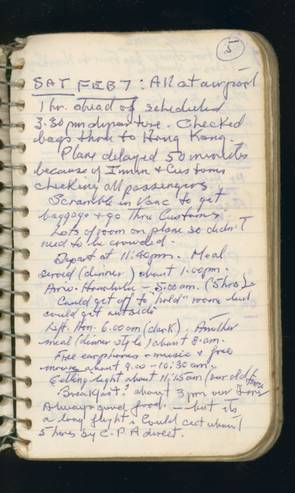 5
SAT FEB 7: All at airport
1 hr. ahead of scheduled
3:30 pm departure. Checked
bags thru to Hong Kong.
Plane delayed 50 minutes
because of Immn & Customs
checking all passengers
Scramble in Vanc to get
baggage & go thru Customs
Lots of room on plane so didn't
need to be crowded.
Depart at 11:40pm. Meal
served (dinner) about 1.00pm.
Arriv. Honolulu - 5:00am. (5 hrs)
Could get off to "hold" room but
could get outside
Left Hon. 6:00am (dark). Another
meal (dinner style) about 8am.
Free earphones - music & free
movie about 9.00 - 10:30am.
Getting light about 11:15am (our old time
Breakfast? about 3pm our time
Always good food. - but its
a long flight. Could cut about
5 hours by C.P.A direct.